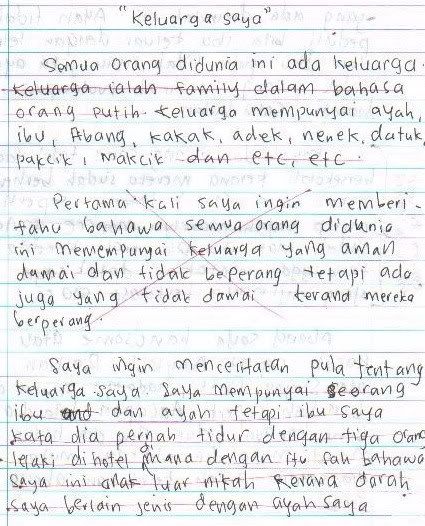 "Keluarga saya"
Semua orang didunia ini ada keluarga.
Keluarga ialah family dalam bahasa
orang putih. Keluarga mempunyai ayah,
ibu, Abang, kakak, adek, nenek, datuk,
pakcik, makcik dan etc, etc.
Pertama kali saya ingin memberi-
tahu bahawa semua orang didunia
ini memempunyai keluarga yang aman
damai dan tidak beperang tetapi ada
juga yang tidak damai kerana mereka
berperang.
Saya ingin menceritakan pula tentang
keluarga saya. Saya mempunyai seorang
ibu and dan ayah tetapi ibu saya
kata dia pernah tidur dengan tiga orang
lelaki di hotel dimana dengan itu sah bahawa
saya ini anak luar nikah kerana darah
saya berlain jenis dengan ayah saya